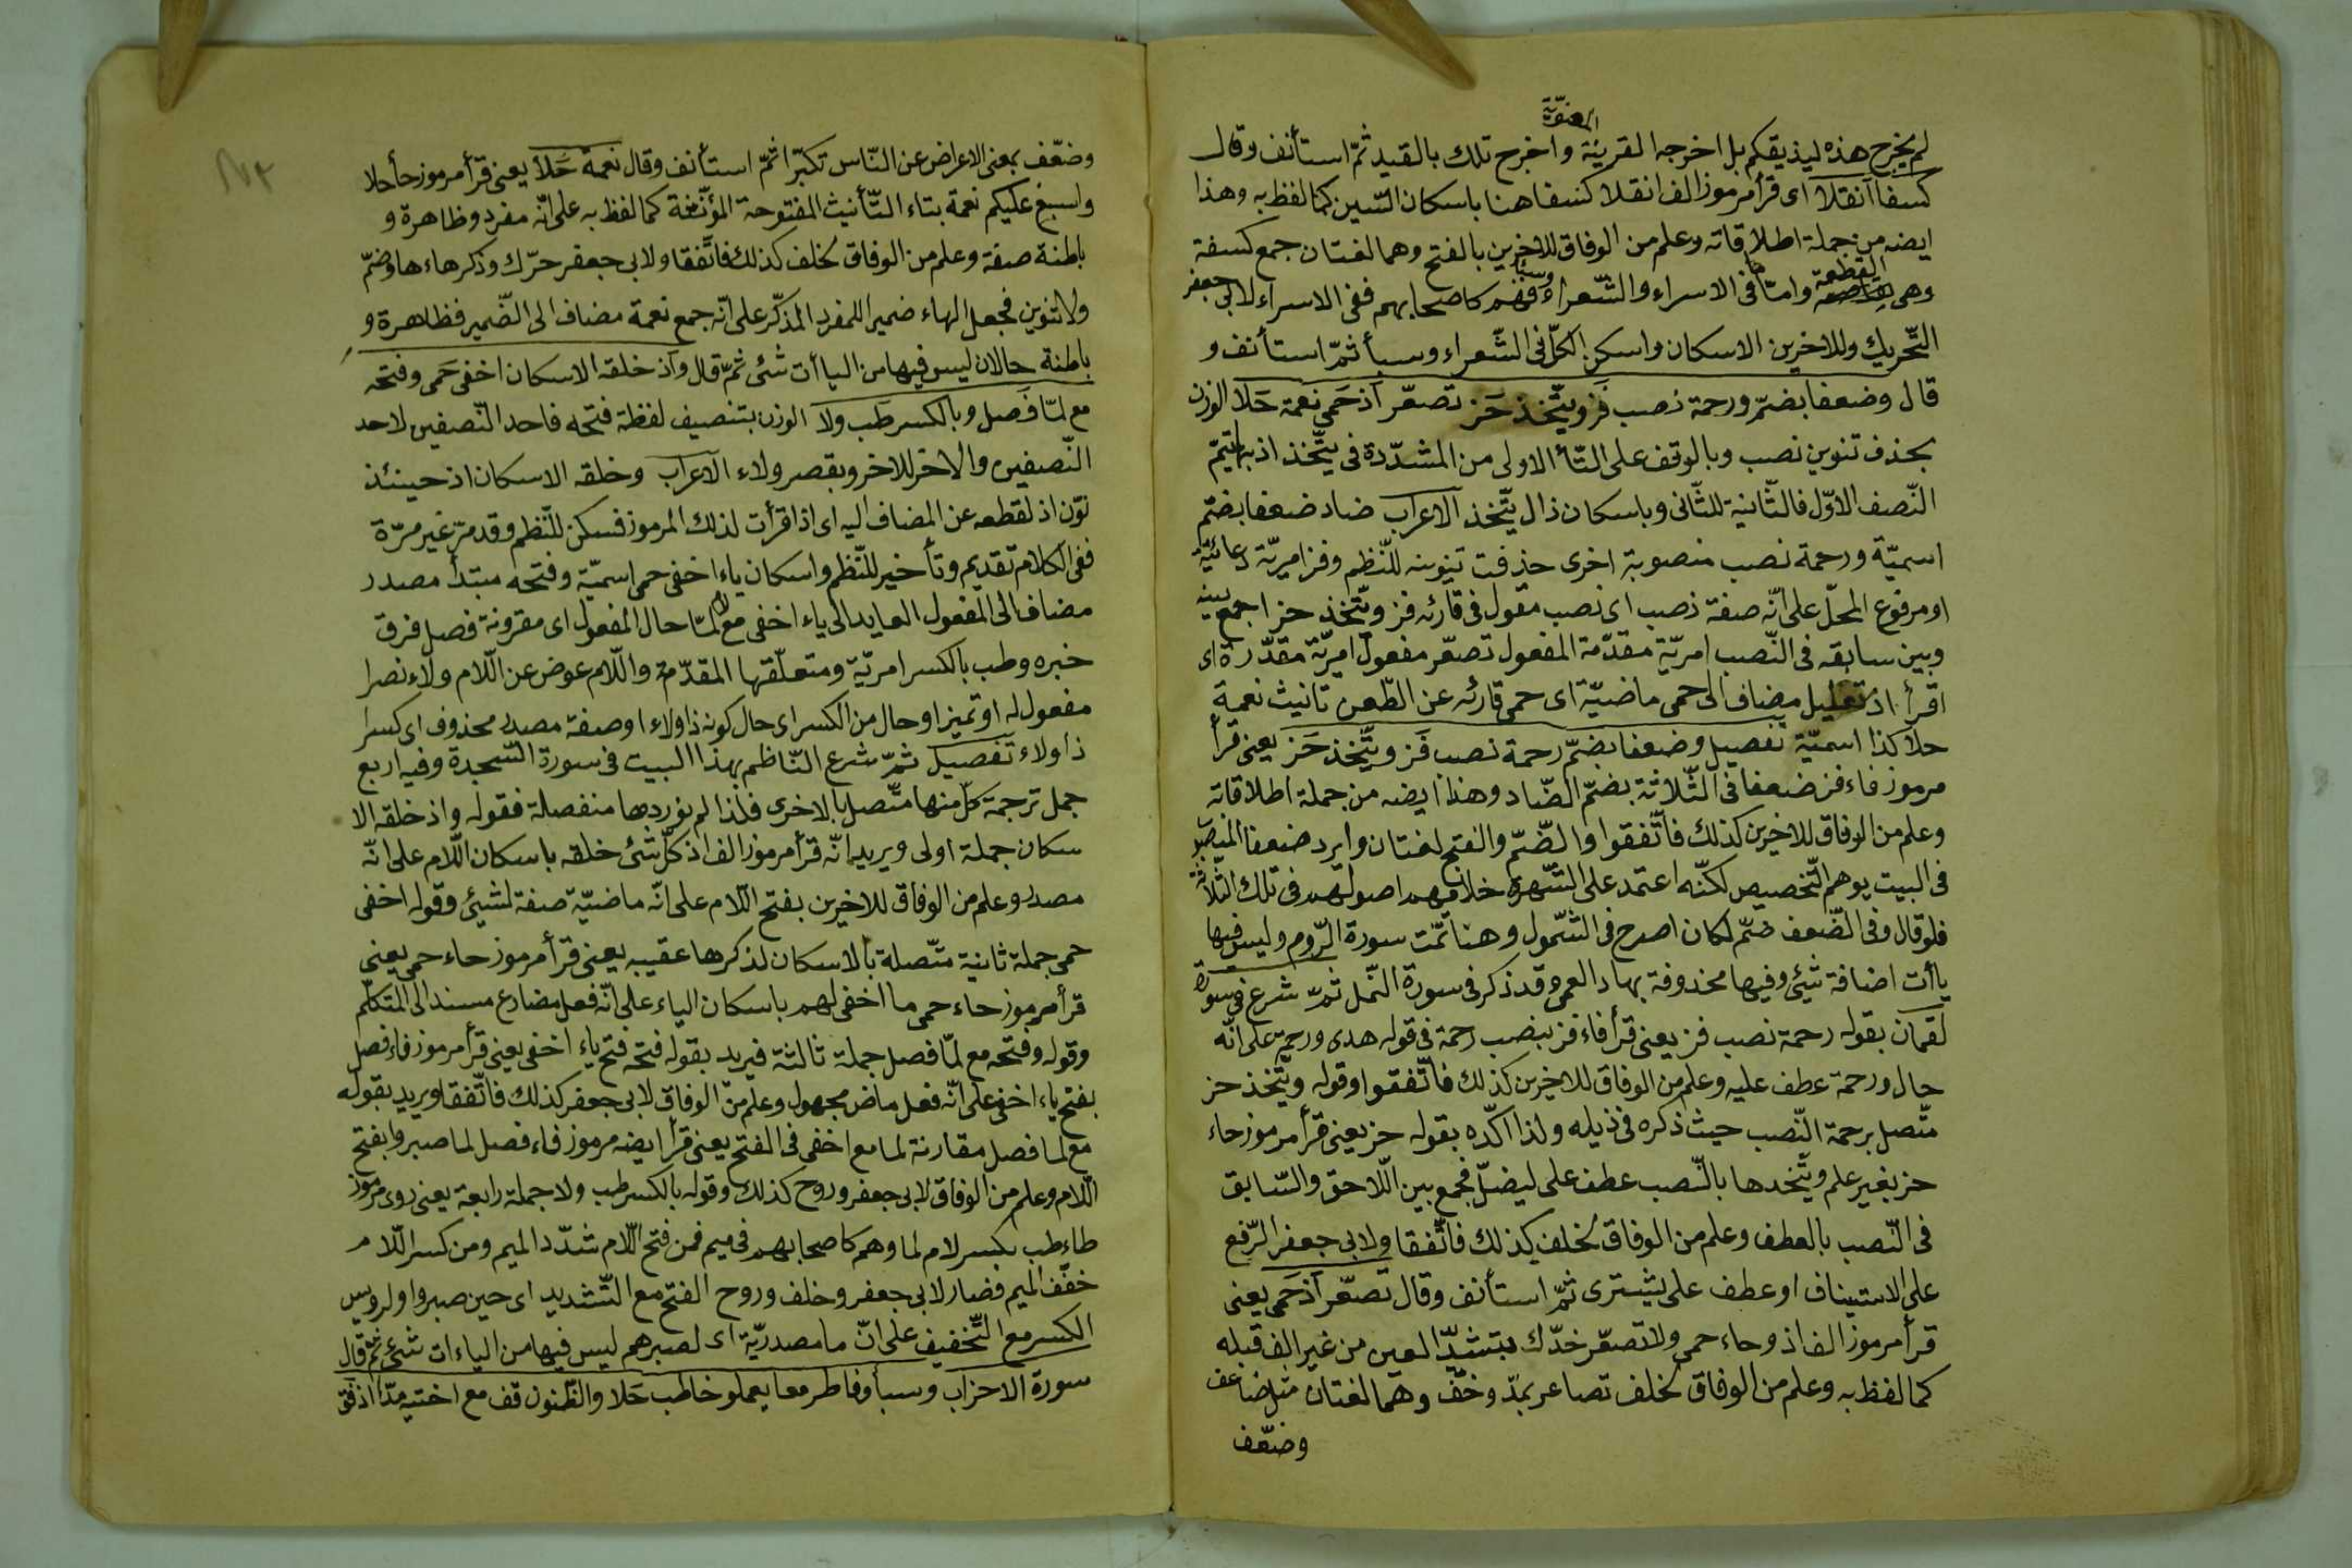 المعنوية
لم يخرج هذه ليذيقكم بل اخرجه القرينة واخرج تلك بالقيد ثمّ استأنف وقال
كسفا انقلا اى قرأ مرموز الف انقلا كسفا هنا باسكان السّين كما لفظ به وهذا
ايضه من جملة اطلاقاته وعلم من الوفاق للاخرين بالفتح وهما لغتان جمع كسفة
وهى القطعة وامّا فى الاسراء والشّعراء وسبأ فهم كاصحابهم ففى الاسراء لابى جعفر
التّحريك وللاخرين الاسكان واسكن الكلّ فى الشّعراء وسبأ ثمّ استأنف و
قال وضعفا بضمّ ورحمة نصب فز ويتّخذ حز تصعّر اذ حمى نعمة حلا الوزن
بحذف تنوين نصب وبالوقف على التّأ الاولى من المشدّدة فى يتّخذ اذ بها يتمّ
النّصف الاوّل فالثّانية للثّانى وباسكان ذال يتّخذ الاعراب ضاد ضعفا بضمّ
اسميّة ورحمة نصب منصوبة اخرى حذفت تنوينه للنّظم وفز امريّة دعائيّة
او مرفوع المحلّ على انّه صفة نصب اى نصب مقول فى قارئه فز ويتّخذ حز اجمع بينه
وبين سابقه فى النّصب امريّة مقدّمة المفعول تصعّر مفعول امريّة مقدّرة اى
اقرأ اذ تعليل مضاف الى حمى ماضيّة اى حمى قارئه عن الطّعن تانيث نعمة
حلا كذا اسميّة تفصيل وضعفا بضمّ رحمة نصب فز ويتّخذ حز يعنى قرأ
مرموز فاء فز ضعفا فى الثّلاثة بضمّ الضّاد وهذا ايضه من جملة اطلاقاته
وعلم من الوفاق للاخرين كذلك فاتّفقوا والضّمّ والفتح لغتان وايرد ضعفا المنصوب
فى البيت يوهم التّخصيص لكنّه اعتمد على الشّهرة خلافهم اصولهم فى تلك الثّلاثة
فلو قال وفى الضّعف ضمّ لكان اصرح فى الشّمول وهنا تمّت سورة الرّوم وليس فيها
ياأت اضافة شئ وفيها محذوفة بهاد العمى وقد ذكر فى سورة النّمل ثمّ شرع فى سورة
لقمان بقوله رحمة نصب فز يعنى قرأ فاء فز بنصب رحمة فى قوله هدى ورحمة على انّه
حال ورحمة عطف عليه وعلم من الوفاق للاخرين كذلك فاتّفقوا وقوله ويتّخذ حز
متّصل برحمة النّصب حيث ذكره فى ذيله ولذا اكّده بقوله حز يعنى قرأ مرموز حاء
حز بغير علم ويتّخذها بالنّصب عطف على ليضلّ فجمع بين اللّاحق والسّابق
فى النّصب بالعطف وعلم من الوفاق لخلف كذلك فاتّفقا ولابى جعفر الرّفع
على الاستيناف او عطف على يشترى ثمّ استأنف وقال تصعّر اذ حمى يعنى
قرأ مرموز الف اذ وحاء حمى ولا تصعّر خدّك بتشدّ العين من غير الف قبله
كما لفظ به وعلم من الوفاق لخلف تصاعر بمدّ وخفّ وهما لغتان مثل ضاعف
وضعّف
وضعّف بمعنى الاعراض عن النّاس تكبّرا ثمّ استأنف وقال نعمة حلا يعنى قرأ مرموز حأ حلا
واسبغ عليكم نعمة بتاء التّأنيث المفتوحة المؤنّثة كما لفظ به على انّه مفرد وظاهرة و
باطنة صفة وعلم من الوفاق لخلف كذلك فاتّفقا ولابى جعفر حرّك وذكر هاءها وضمّ
ولا تنوين فجعل الهاء ضميرا للمفرد المذكّر على انّه جمع نعمة مضاف الى الضّمير فظاهرة و
باطنة حالان ليس فيها من الياأت شئ ثمّ قال واذ خلقه الاسكان اخفى حمى وفتحه
مع لمّا فصل وبالكسر طب ولا الوزن بتنصيف لفظة فتحه فاحد النّصفين لاحد
النّصفين والاخر للاخر وبقصر ولاء الاعراب وخلقه الاسكان اذ حينئذ
نوّن اذ لقطعه عن المضاف اليه اى اذا قرأت لذلك المرموز فسكن للنّظم وقد مرّ غير مرّة
ففى الكلام تقديم وتأخير للنّظم واسكان ياء اخفى حمى اسميّة وفتحه مبتدأ مصدر
مضاف الى المفعول العايد الى ياء اخفى مع لمّا حال المفعول اى مقرونة فصل فرق
خبره وطب بالكسر امريّة ومتعلّقها المقدّمة واللّام عوض عن اللّام ولاء نصرا
مفعول له او تميز او حال من الكسر اى حال كونه ذا ولاء او صفة مصدر محذوف اى كسرا
ذا ولاء تفصيل ثمّ شرع النّاظم بهذا البيت فى سورة السّجدة وفيه اربع
جمل ترجمة كلّ منها متّصل بالاخرى فلذا لم نوردها منفصلة فقوله واذ خلقه الا
سكان جملة اولى ويريد انّه قرأ مرموز الف اذ كلّ شئ خلقه باسكان اللّام على انّه
مصدر وعلم من الوفاق للاخرين بفتح اللّام على انّه ماضيّة صفة لشيئ وقوله اخفى
حمى جملة ثانية متّصلة بالاسكان لذكرها عقيبه يعنى قرأ مرموز حاء حمى يعنى
قرأ مرموز حاء حمى ما اخفى لهم باسكان الياء على انّه فعل مضارع مسند الى المتكلّم
وقوله وفتحه مع لمّا فصل جملة ثالثة فيريد بقوله فتحه فتح ياء اخفى يعنى قرأ مرموز فاء فصل
بفتح ياء اخفى على انّه فعل ماض مجهول وعلم من الوفاق لابى جعفر كذلك فاتّفقا ويريد بقوله
مع لما فصل مقارنة لما مع اخفى فى الفتح يعنى قرأ ايضه مرموز فاء فصل لما صبروا بفتح
اللّام وعلم من الوفاق لابى جعفر وروح كذلك وقوله بالكسر طب ولا جملة رابعة يعنى روى مرموز
طاء طب بكسر لام لما وهم كاصحابهم فى ميم فمن فتح اللّام شدّد الميم ومن كسر اللّام
خفّف الميم فصار لابى جعفر وخلف وروح الفتح مع التّشديد اى حين صبروا ولرويس
الكسر مع التّخفيف على انّ ما مصدريّة اى لصبرهم ليس فيها من الياءات شئ ثمّ قال
سورة الاحزاب وسبأ وفاطر معا يعملو خاطب حلا والظّنون قف مع اختيه مدّا اذ فق